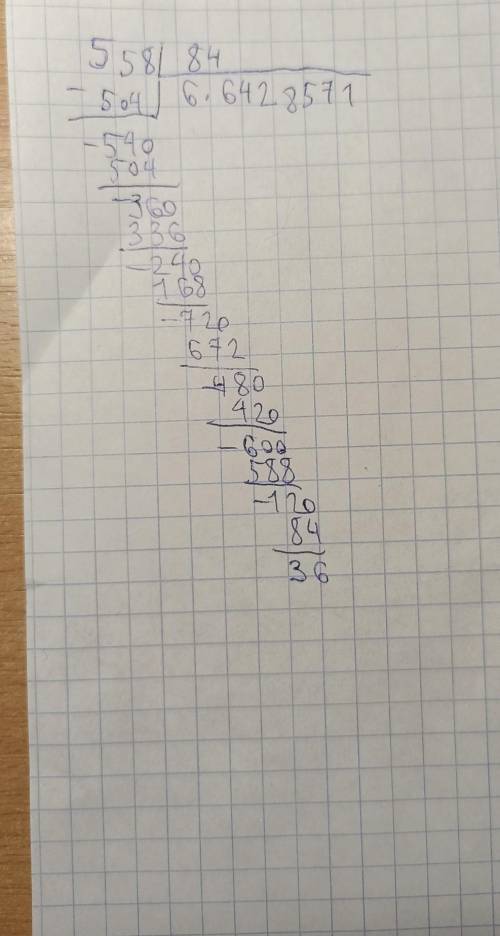 558 84
- 504 6.6428571
- 540
504
- 360
336
- 240
168
- 720
672
- 480
420
- 600
588
- 120
84
36